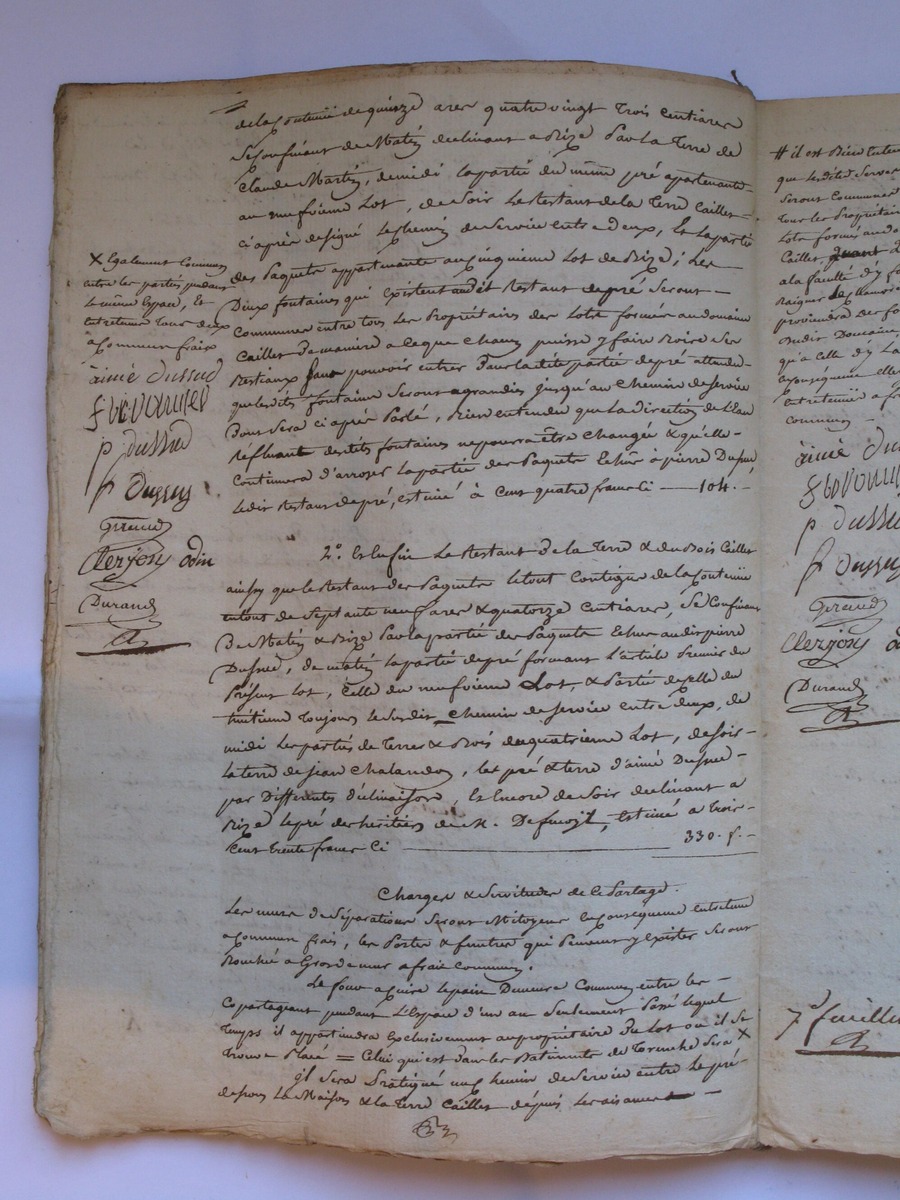 de la Contenüe de quinze ares quatre vingt trois Centiares
Se Confinant de Matin declinant a Bize Par la Terre de
Claude Martin, de midi la partie du même pré apartenante
au neufvieme Lot, de Soir Le Restant de la Terre Caillet
ci après designé Le chemin de Service entre deux, Et la partie
des Paquets appartenante au cinquieme Lot de Bize; Les
Deux fontaines qui Existent audit Restant de pré Seront
Communes entre tous Les Propriétaires des Lots formés au domaine
Caillet de maniere a ce que chacun puisse y faire Boire Ses
Bestiaux Sans pouvoir entrer dans la dite partie de pré attendu
que lesdites fontaines Seront agrandies jusqu'au Chemin de Service
Dont Sera ci après Parlé, Bien entendu que La direction de l'Eau
Refluante desdites fontaines ne pourra être Changée & qu'elle
Continuera d'arroser La partie des Paquets Echue à pierre Dussud
Ledit Restant de pré, estimé à Cent quatre francs Ci 104.
2º. Et Enfin Le Restant de la Terre & du Bois Caillet
ainsy que le Restant des Paquets le tout Contigue de la Contenüe
entout de Septante neuf ares & quatorze Centiares, Se Confinant
De Matin & Bize Par la partie des Paquets Echue audit pierre
Dussud, de matin la partie de pré formant L'article Premier du
Présent Lot, Celle du neufvieme Lot, & Partie de Celle du
huitieme Toujours le Susdit Chemin de Service entre deux, de
midi Les parties de Terres & Bois du quatrieme Lot, de Soir
La terre de Jean Chalandon, Les pré & terre d'aimé Dussud
par Differentes déclinaisons, Et Encore de Soir declinant a
Bize Le pré des héritiers de M. estimé a Trois
Cent trente francs Ci 330. f.
Charges & Servitudes de Ce Partage.
Les murs de Séparations Seront Mitoyens en Conséquence entretenus
a Commun frais, Les Portes & fenêtres qui Peuvent y Exister Seront
Bouchés a Gros de mur a frais Communs.
Le four a Cuire le pain Demeure Commun entre les
Copartageants pendant L'Espace d'un an Seulement Passé lequel
Temps il appartiendra Exclusivement au propriétaire du Lot ou il Se
Trouve Placé = Celui qui est dans Les Batiments de Tranche Sera X
Il Sera Pratiqué un Chemin de Service entre Le pré
depuis La Maison & la Terre Caillet depuis Les aisances
X Egalement Commun
entre les parties pendant
Le même Espace, Et
Entretenus Tous deux
a Commun frais
aimé dussud
p Dussud
Dussuy
Giraud
Clerjon odin
Durand
# il est Bien Entendu
que
Seront Communes
Tous Les Propriétaires
Lots formés au do
Caillet, Quant
a la faculté d'y fa
proviendra des fo
Dudit Domaine
qu'a Celle d'y La
Conséquence elle
Entretenue a fr
Commun
aimé du
p dussu
Dussuy
Giraud
Clerjon od
Durand
7e feuillet